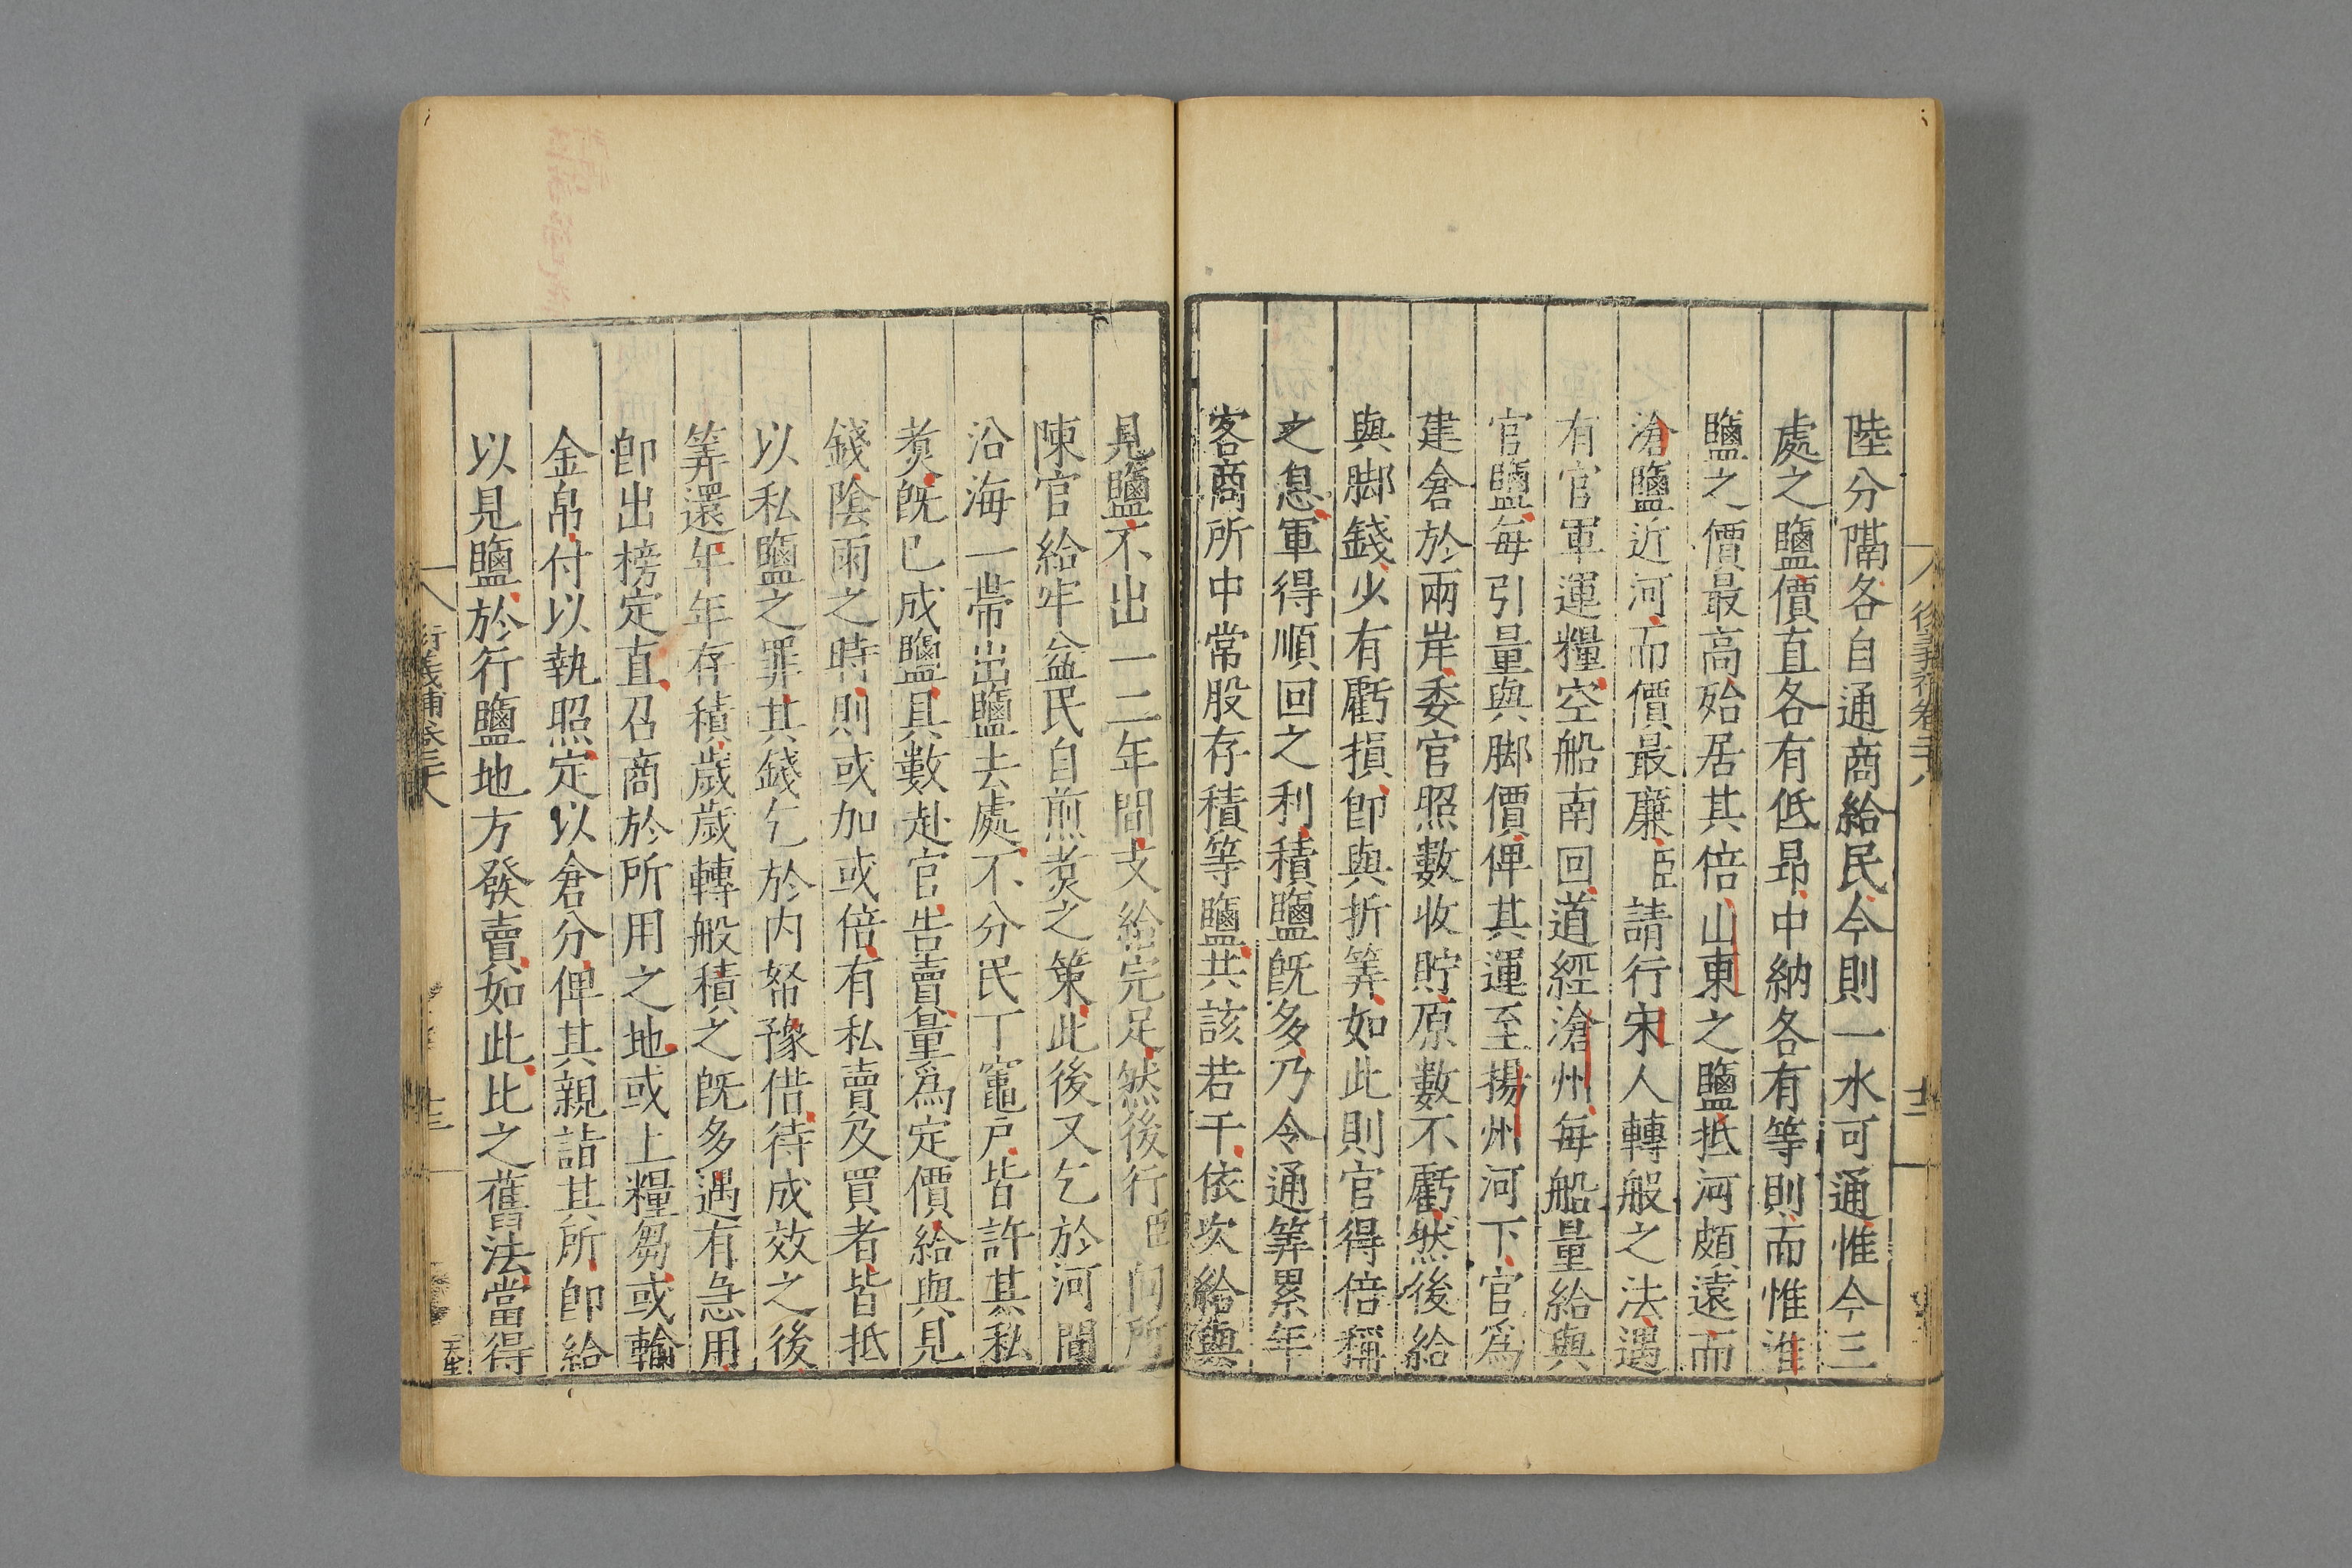 陸分隔各自通商給民今則一水可通惟今三
處之鹽價直各有低昂中納各有等則而惟淮
鹽之價最高殆居其倍山東之鹽抵河頗遠而
滄鹽近河而價最廉臣請行宋人轉般之法遇
有官軍運糧空船南回道經滄州每船量給與
官鹽每引量與脚價俾其運至揚州河下官爲
建倉於兩岸委官照數收貯原數不虧然後給
與脚錢少有虧損卽與折筭如此則官得倍稱
之息軍得順回之利積鹽旣多乃令通筭累年
客商所中常股存積等鹽共該若干依次給與
見鹽不出一二年間支給完足然後行臣向所
陳官給牢盆民自煎煑之策此後又乞於河間
沿海一帶出鹽去處不分民丁竈戶皆許其私
煑旣已成鹽具數赴官告賣量爲定價給與見
錢陰雨之時則或加或倍有私賣及買者皆抵
以私鹽之罪其錢乞於内帑豫借待成效之後
筭還年年存積歲歲轉般積之旣多遇有急用
卽出榜定直召商於所用之地或上糧芻或輸
金帛付以執照定以倉分俾其親詣其所卽給
以見鹽於行鹽地方發賣如此比之舊法當得
衍義補卷二十八
十三